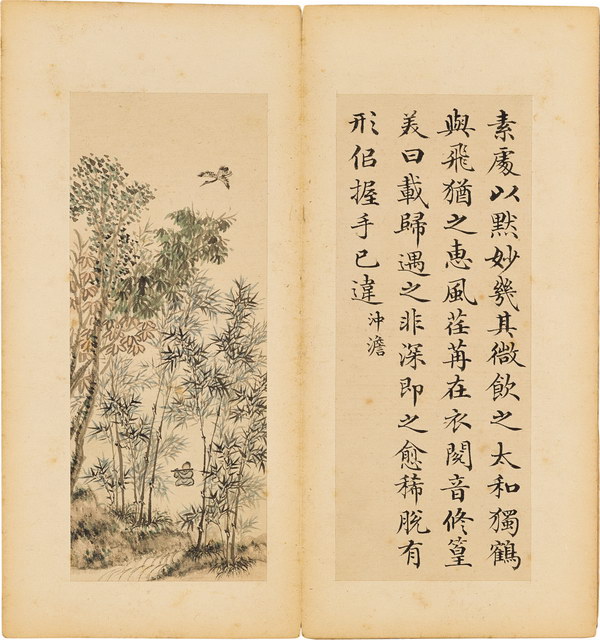 素處以默妙幾其微飲之太和獨鶴
與飛猶之惠風荏苒在衣閱音修篁
美曰載歸遇之非深即之愈稀脫有
形佀握手已違
沖澹